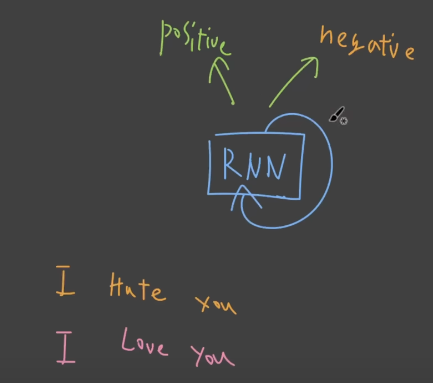 positive
negative
RNN
I Hate you
I Love You